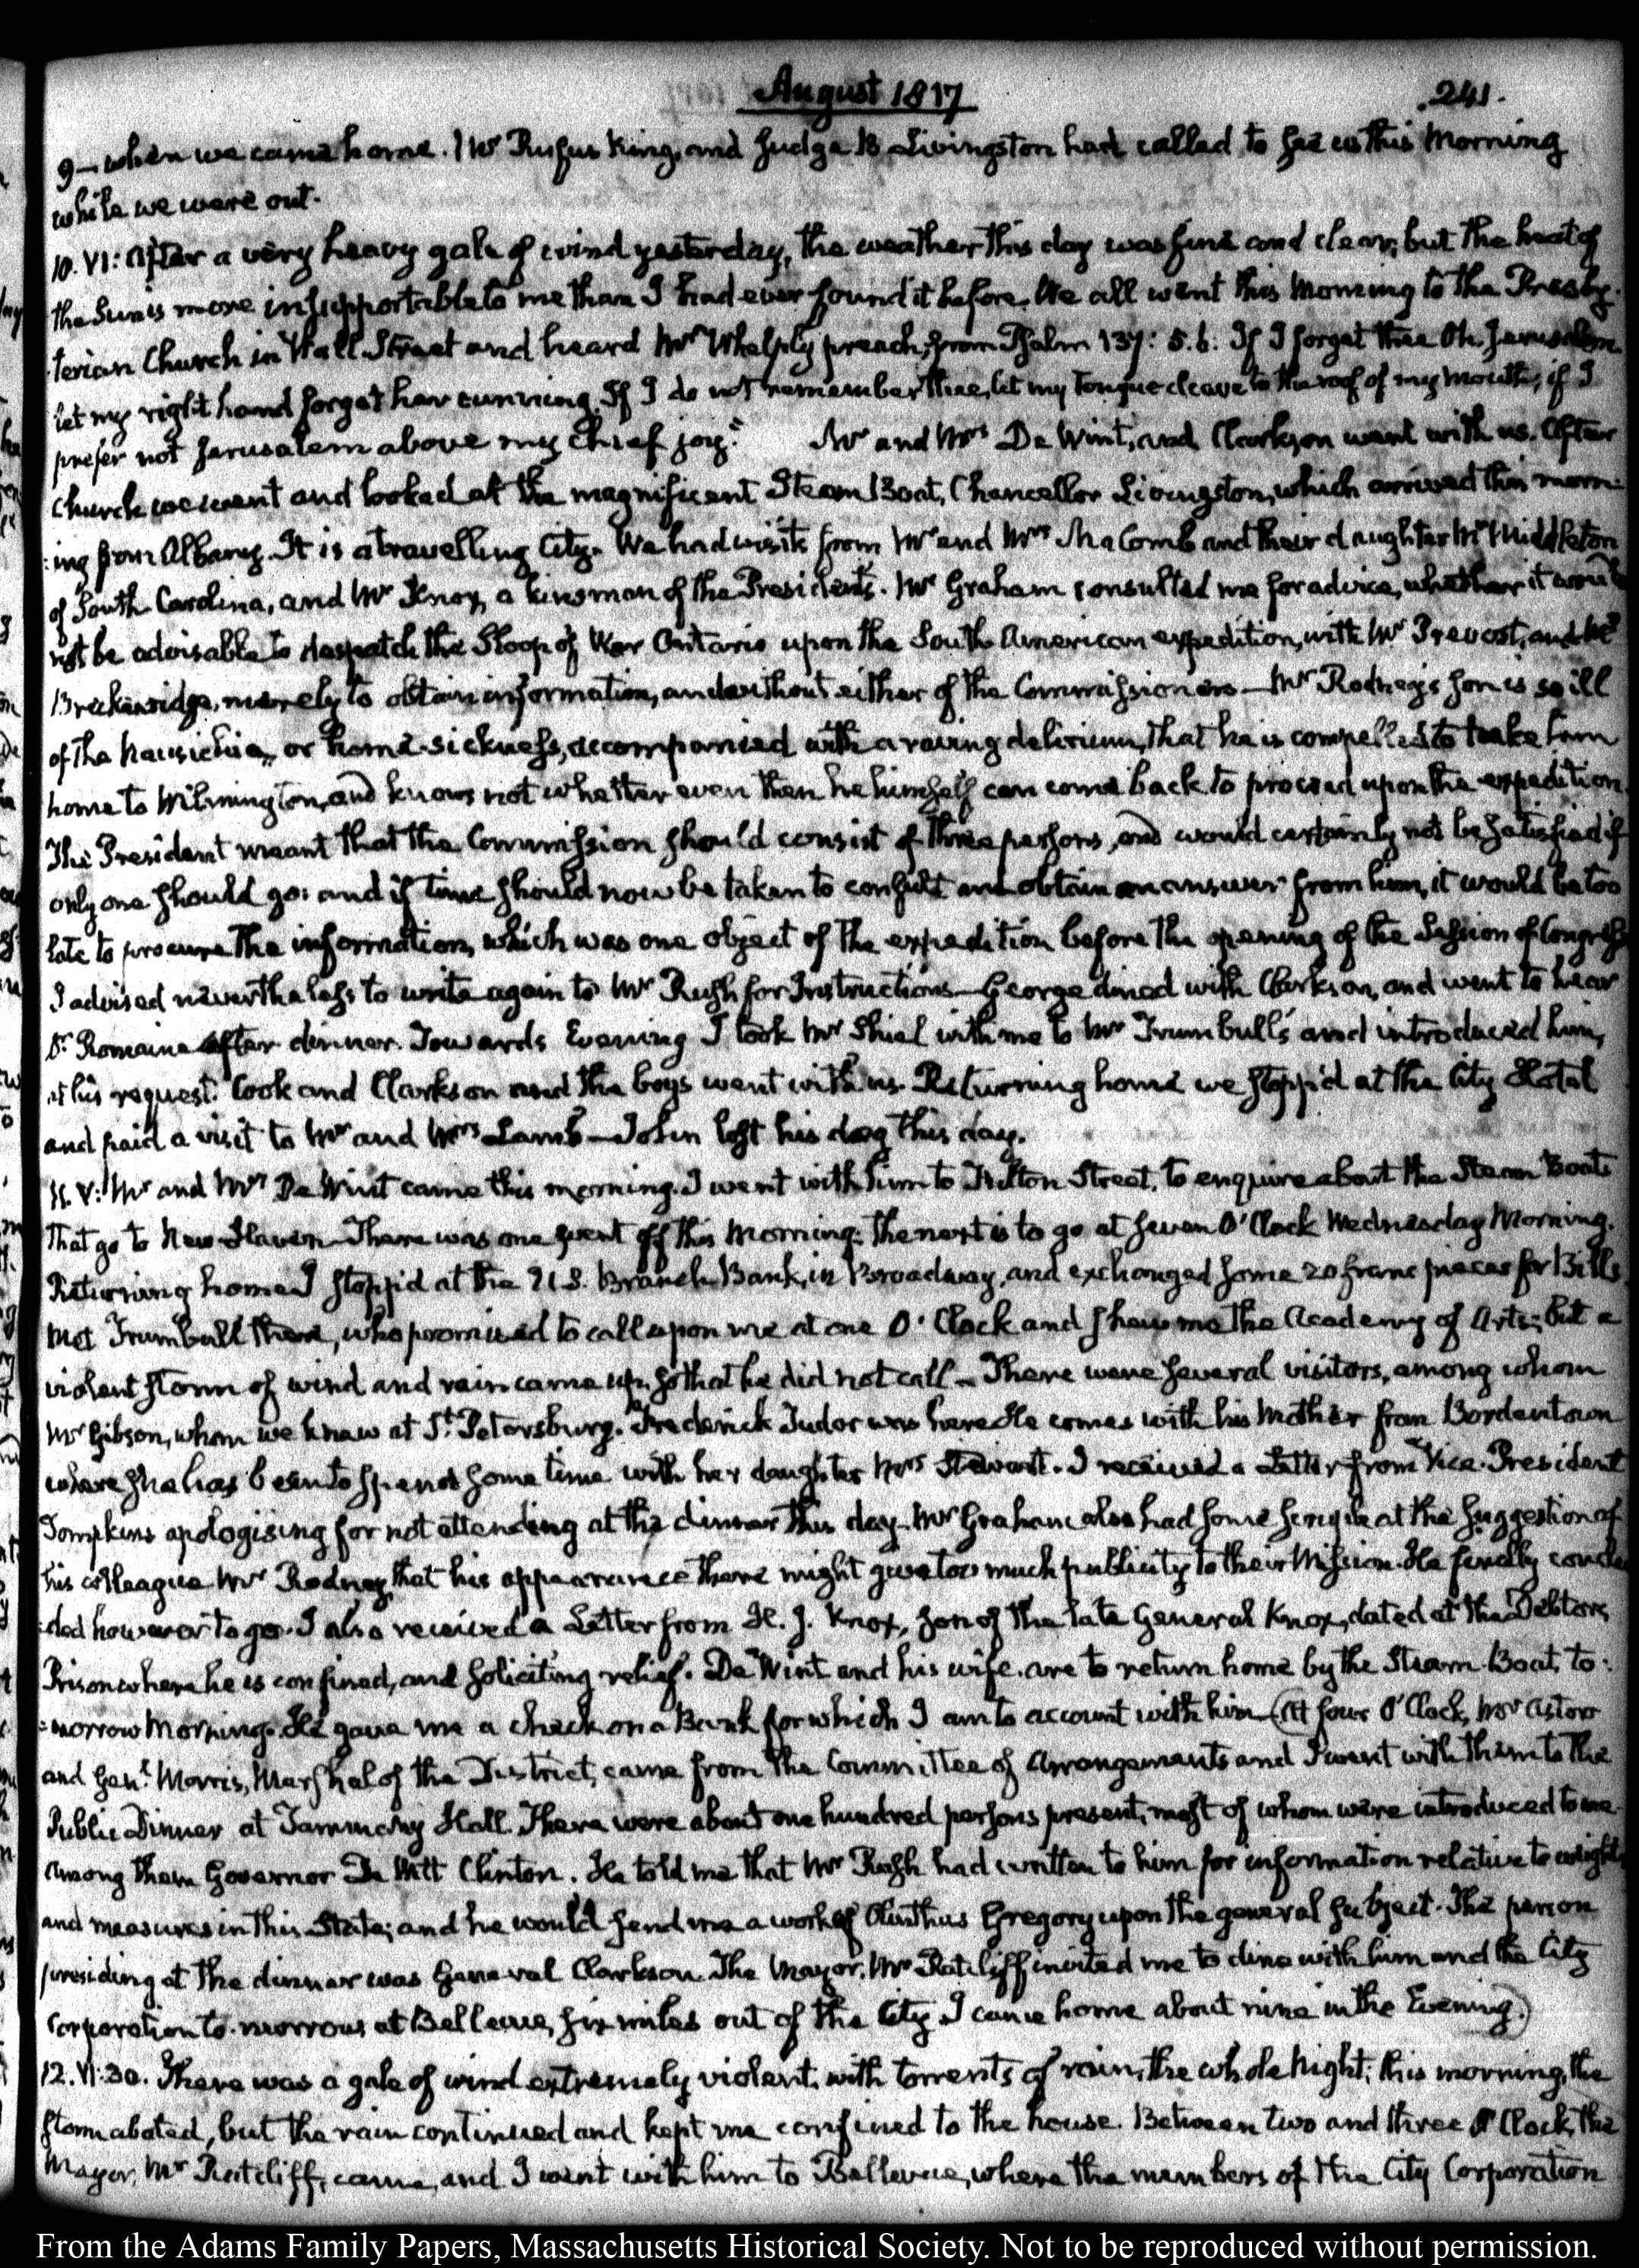 August 1817
241.
9— when we came home. Mr Rufus King, and Judge B Livingston had called to see us this Morning
while we were out.
10. VI: After a very heavy gale of wind yesterday, the weather this day was fine and clear; but the heat of
the Sun is more insupportable to me than I had ever found it before. We all went this Morning to the Presby-
-terian Church in Wall Street and heard Mr Whelply preach, from Psalm 137: 5.6: If I forget thee Oh. Jerusalem
let my right hand forget her cunning. If I do not remember thee, let my tongue cleave to the roof of my mouth; if I
prefer not Jerusalem above my chief joy." Mr and Mrs De Wint, and Clarkson went with us. After
Church we went and looked at the magnificent Steam Boat, Chancellor Livingston, which arrived this morn-
:ing from Albany. It is a travelling City. We had visits from Mr and Mrs MaComb and their daughter Mr Middleton
of South Carolina, and Mr Jenoy, a kinsman of the President's. Mr Graham consulted me for advice, whether it would
not be advisable to despatch the Sloop of War Ontario upon the South American expedition, with Mr Prevost, and Mr
Breckenridge, merely to obtain information, and without either of the Commissioners— Mr Rodney's son is so ill
of the or home-sickness, accompanied with a raving delirium, that he is compelled to take him
home to Wilmington, and knows not whether even then he himself can come back to proceed upon the expedition.
The President meant that the Commission should consist of three persons, and would certainly not be satisfied if
only one should go: and if time should now be taken to consult and obtain an answer from him, it would be too
late to procure the information, which was one object of the expedition before the opening of the Session of Congress
I advised nevertheless to write again to Mr Rush for Instructions— George dined with Clarkson, and went to hear
Dr Romaine after dinner. Towards Evening I took Mr Shiel with me to Mr Trumbull's and introduced him,
at his request. Cook and Clarkson and the boys went with us. Returning home we stopp'd at the City Hotel
and paid a visit to Mr and Mrs Lamb— John lost his dog this day.
11. V: Mr and Mrs De Wint came this morning. I went with him to Fulton Street, to enquire about the Steam Boats
that go to New-Haven— There was one went off this Morning. The next is to go at seven O'Clock Wednesday Morning.
Returning home I stopp'd at the U.S. Branch Bank, in Broadway, and exchanged some 20 franc pieces for Bills.
Met Trumbull there, who promised to call upon me at one O'Clock and shew me the Academy of Arts; but a
violent storm of wind and rain came up, so that he did not call— There were several visitors, among whom
Mr Gibson, whom we knew at St Petersburg. Frederick Tudor was here He comes with his Mother from Bordentown
where she has been to spend some time with her daughter Mrs Stewart. I received a Letter from Vice-President
Tompkins apologising for not attending at the dinner this day. Mr Graham also had some scruple at the suggestion of
his colleague Mr Rodney, that his appearance there might give too much publicity to their Mission. He finally conclu
:ded however to go. I also received a Letter from H. J. Knox, son of the late General Knox, dated at the Debtors
Prison where he is confined, and soliciting relief. De Wint and his wife are to return home by the Steam-Boat, to-
-morrow Morning. He gave me a check on a Bank for which I am to account with him— (At four O'Clock, Mr Astor
and Genl. Morris, Marshal of the District, came from the Committee of Arrangements and I went with them to the
Public Dinner at Tammany Hall. There were about one hundred persons present, most of whom were introduced to me
among them Governor De Witt Clinton. He told me that Mr Rush had written to him for information relative to weights
and measures in this State; and he would send me a work of Olinthus Gregory upon the general subject. The person
presiding at the dinner was General Clarkson. The Mayor, Mr Ratcliff invited me to dine with him and the City
Corporation to-morrow at Bellevue, six miles out of the City. I came home about nine in the Evening.)
12. VI:30. There was a gale of wind extremely violent, with torrents of rain, the whole Night; this morning, the
storm abated, but the rain continued and kept me confined to the house. Between two and three O'Clock, the
Mayor, Mr Ratcliff, came, and I went with him to Bellevue, where the members of the City Corporation
From the Adams Family Papers, Massachusetts Historical Society. Not to be reproduced without permission.